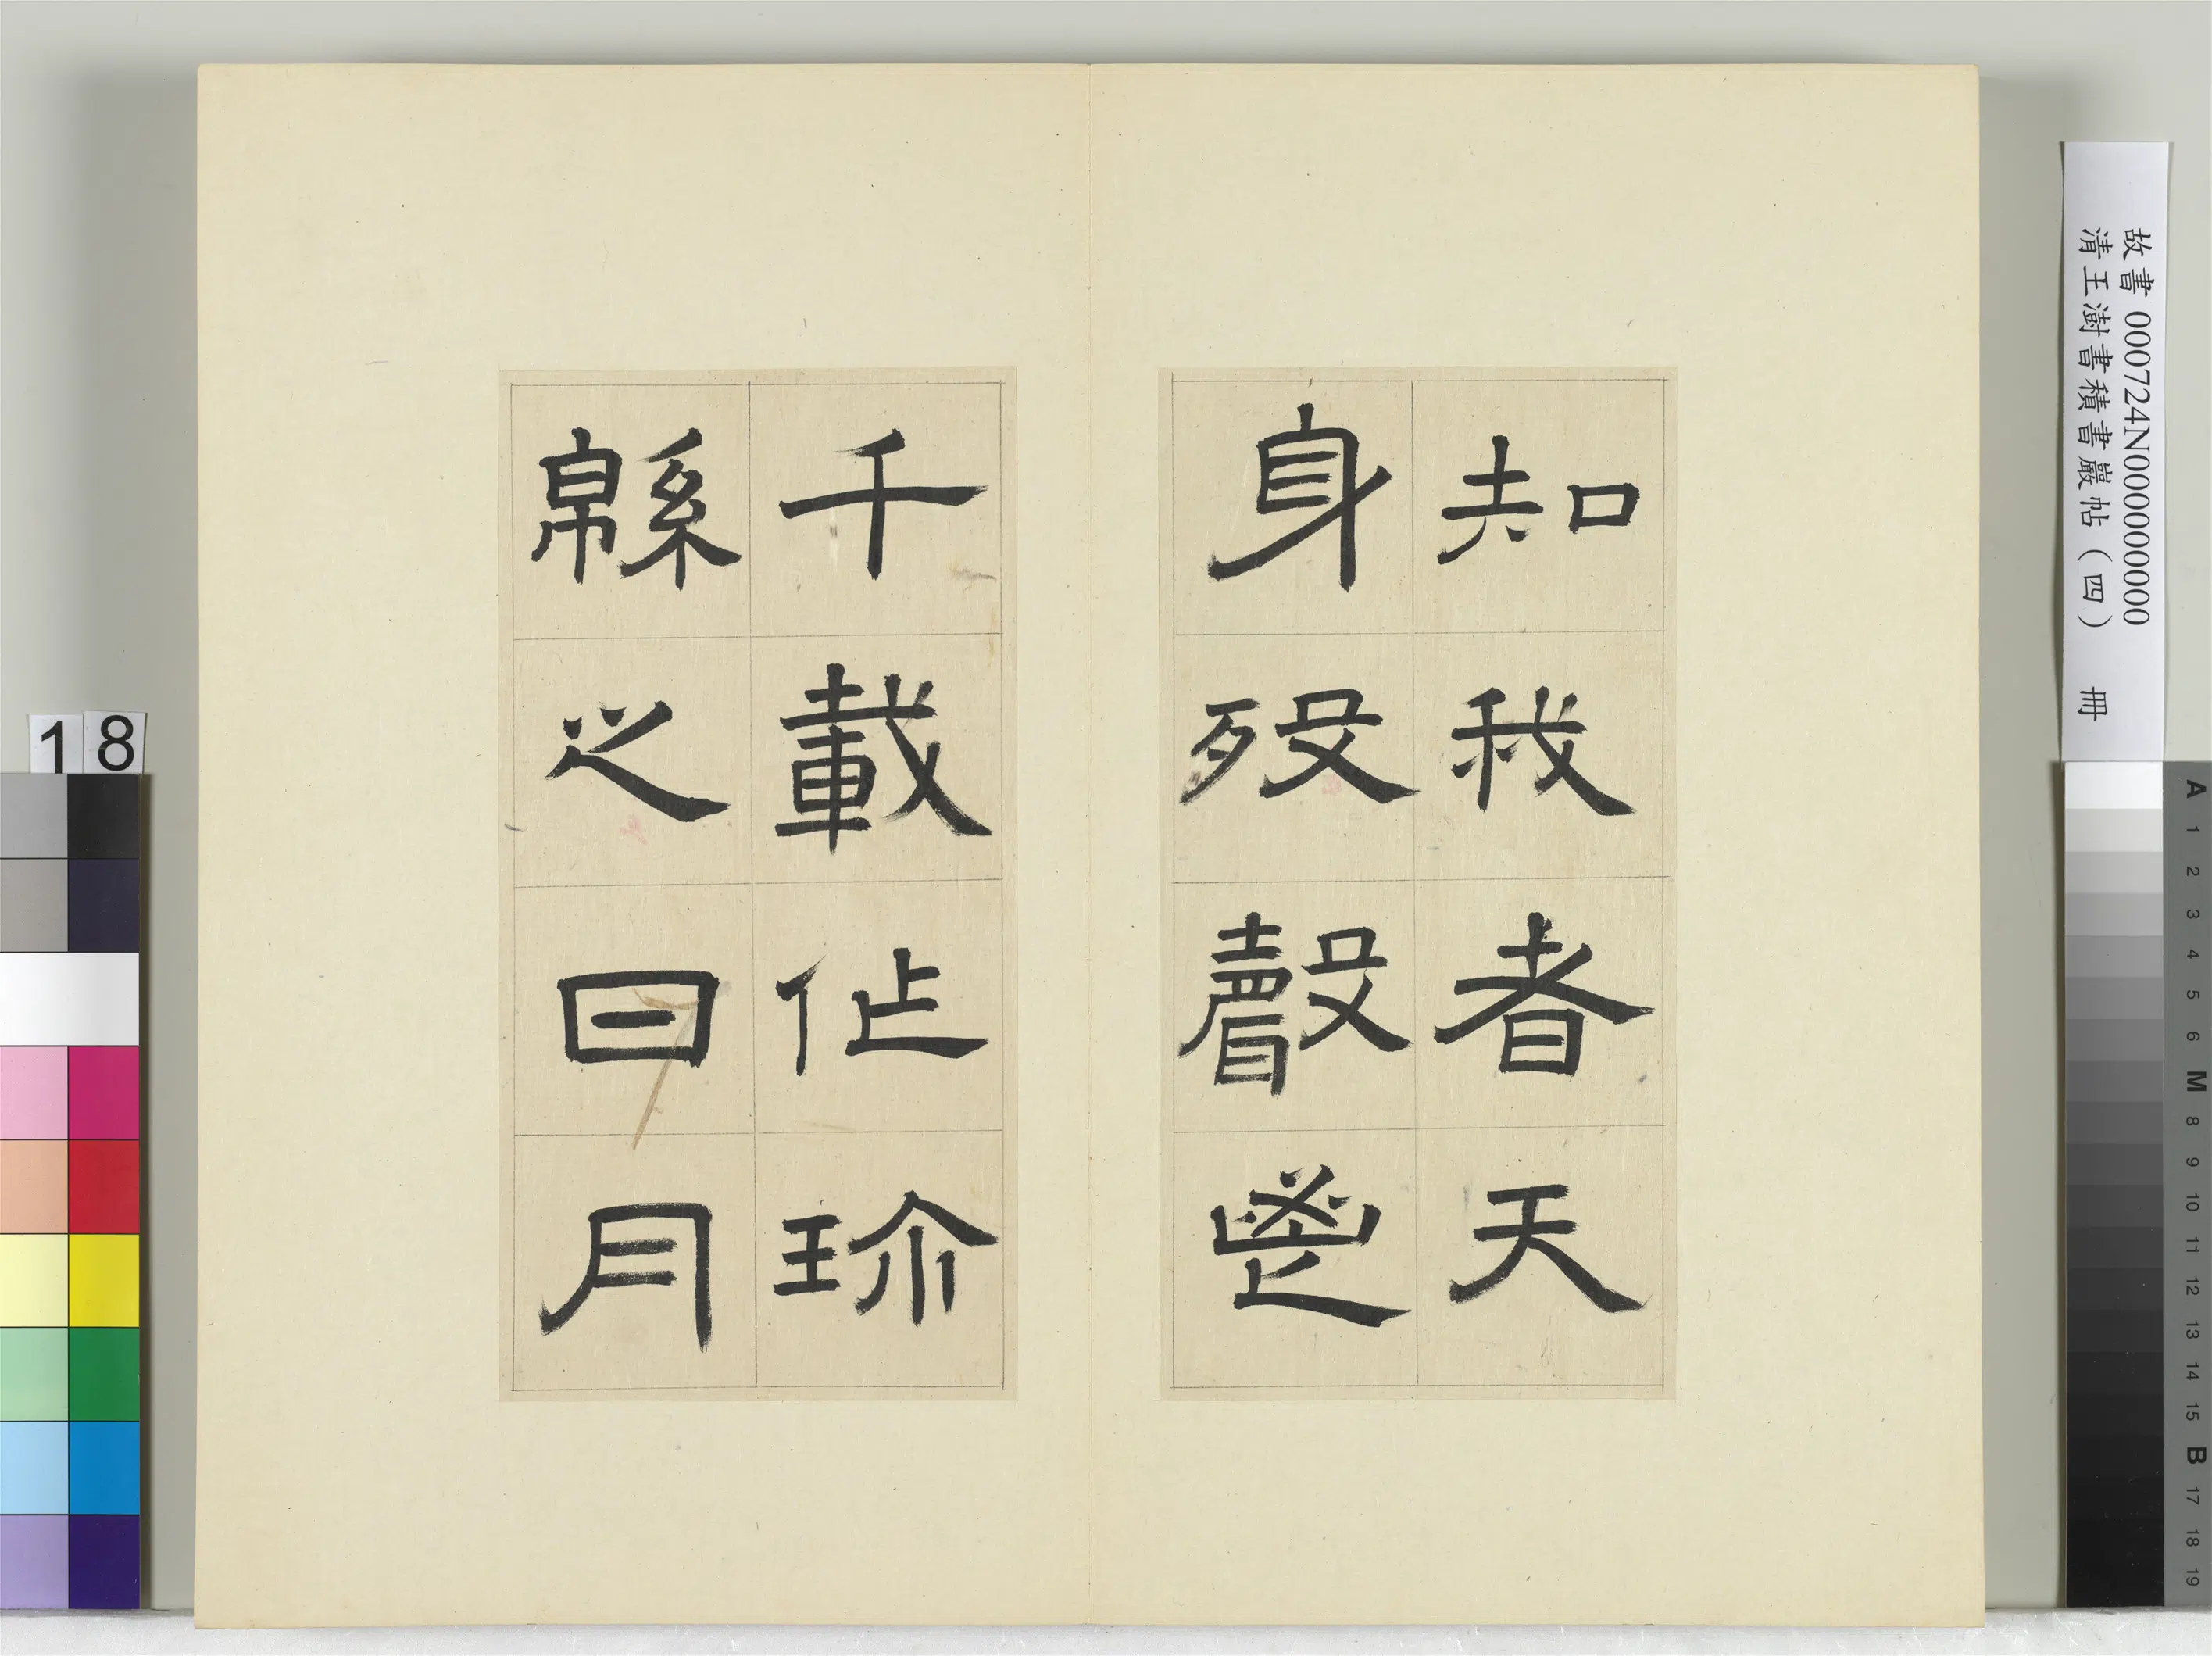 知我者天
身歿聲鬯
千載作珍
緜之日月
故書 000724N000000000
清王澍書積書巖帖（四） 冊
18
A 1 2 3 4 5 6 M 8 9 10 11 12 13 14 15 B 17 18 19